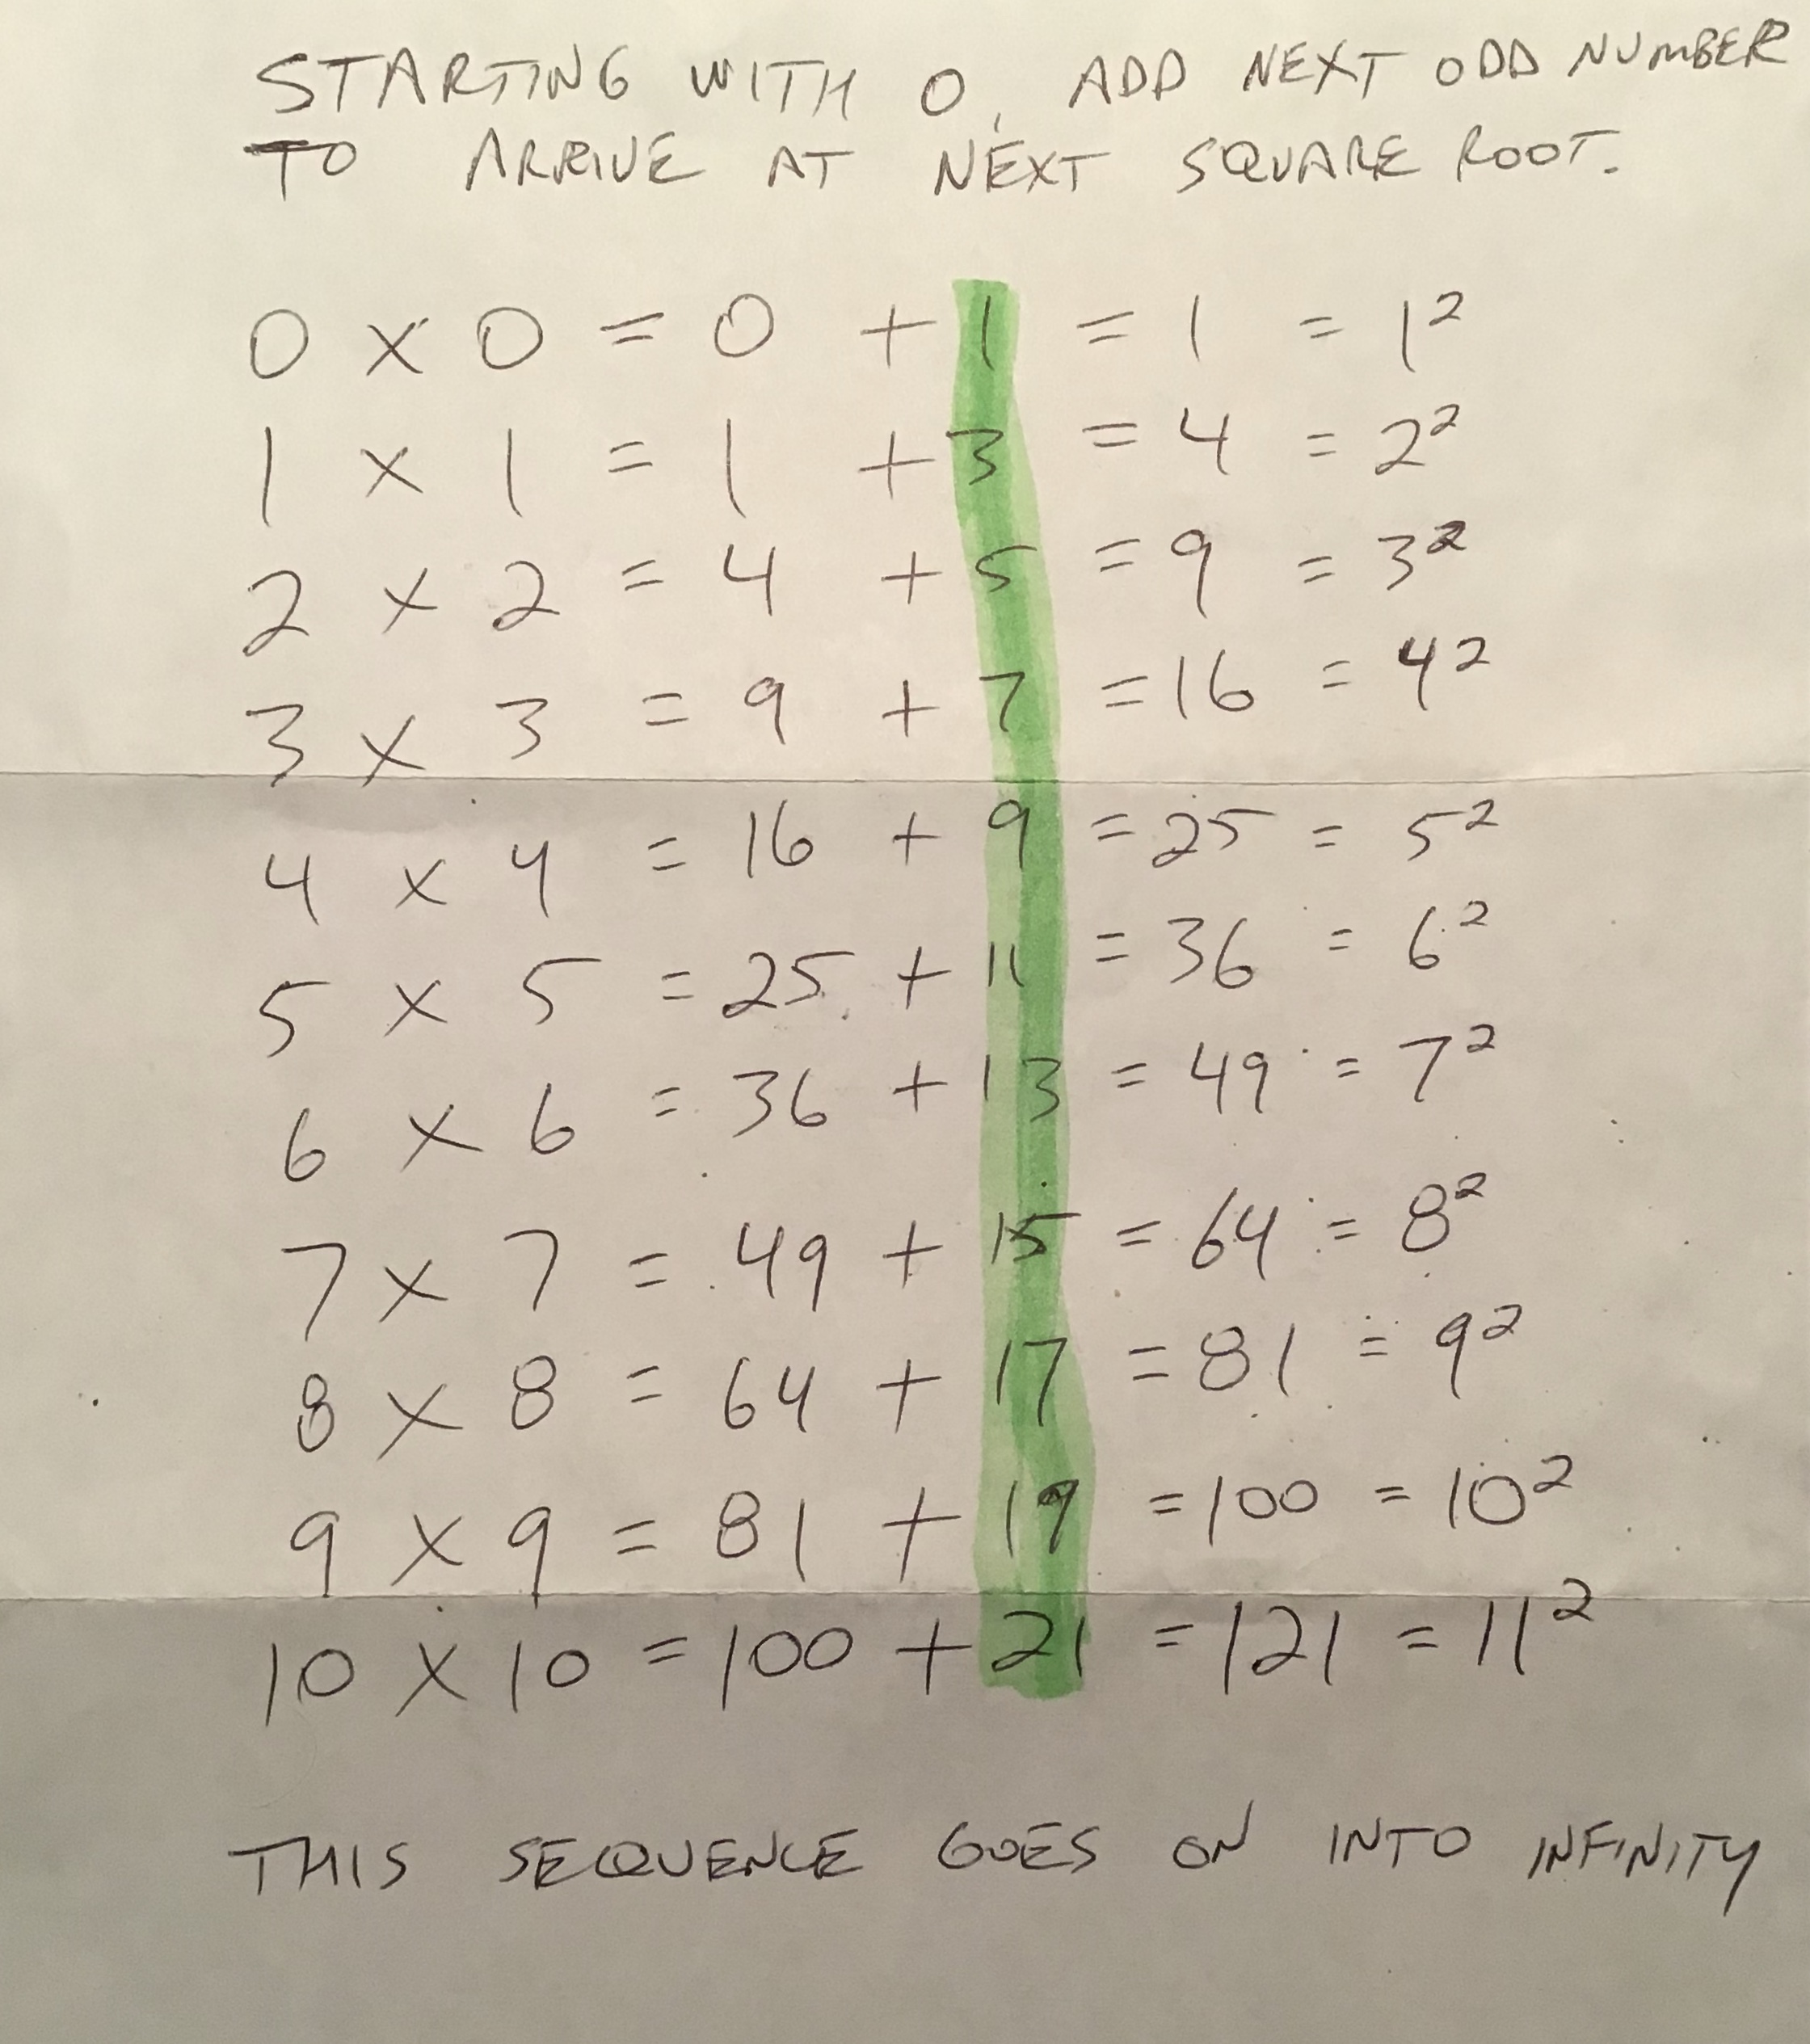 STARTING WITH 0, ADD NEXT ODD NUMBER
TO ARRIVE AT NEXT SQUARE ROOT.
0 × 0 = 0 + 1 = 1 = 1²
1 × 1 = 1 + 3 = 4 = 2²
2 × 2 = 4 + 5 = 9 = 3²
3 × 3 = 9 + 7 = 16 = 4²
4 × 4 = 16 + 9 = 25 = 5²
5 × 5 = 25 + 11 = 36 = 6²
6 × 6 = 36 + 13 = 49 = 7²
7 × 7 = 49 + 15 = 64 = 8²
8 × 8 = 64 + 17 = 81 = 9²
9 × 9 = 81 + 19 = 100 = 10²
10 × 10 = 100 + 21 = 121 = 11²
THIS SEQUENCE GOES ON INTO INFINITY